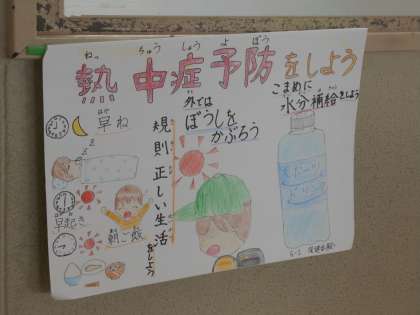 ねっ ちゅう しょう よ ぼう
熱中症予防をしよう
早ね
早起き
朝ご飯
規則正しい生活をしよう
外では
ぼうしを
かぶろう
こまめに
水分補給をしよう
スポーツ
ドリンク